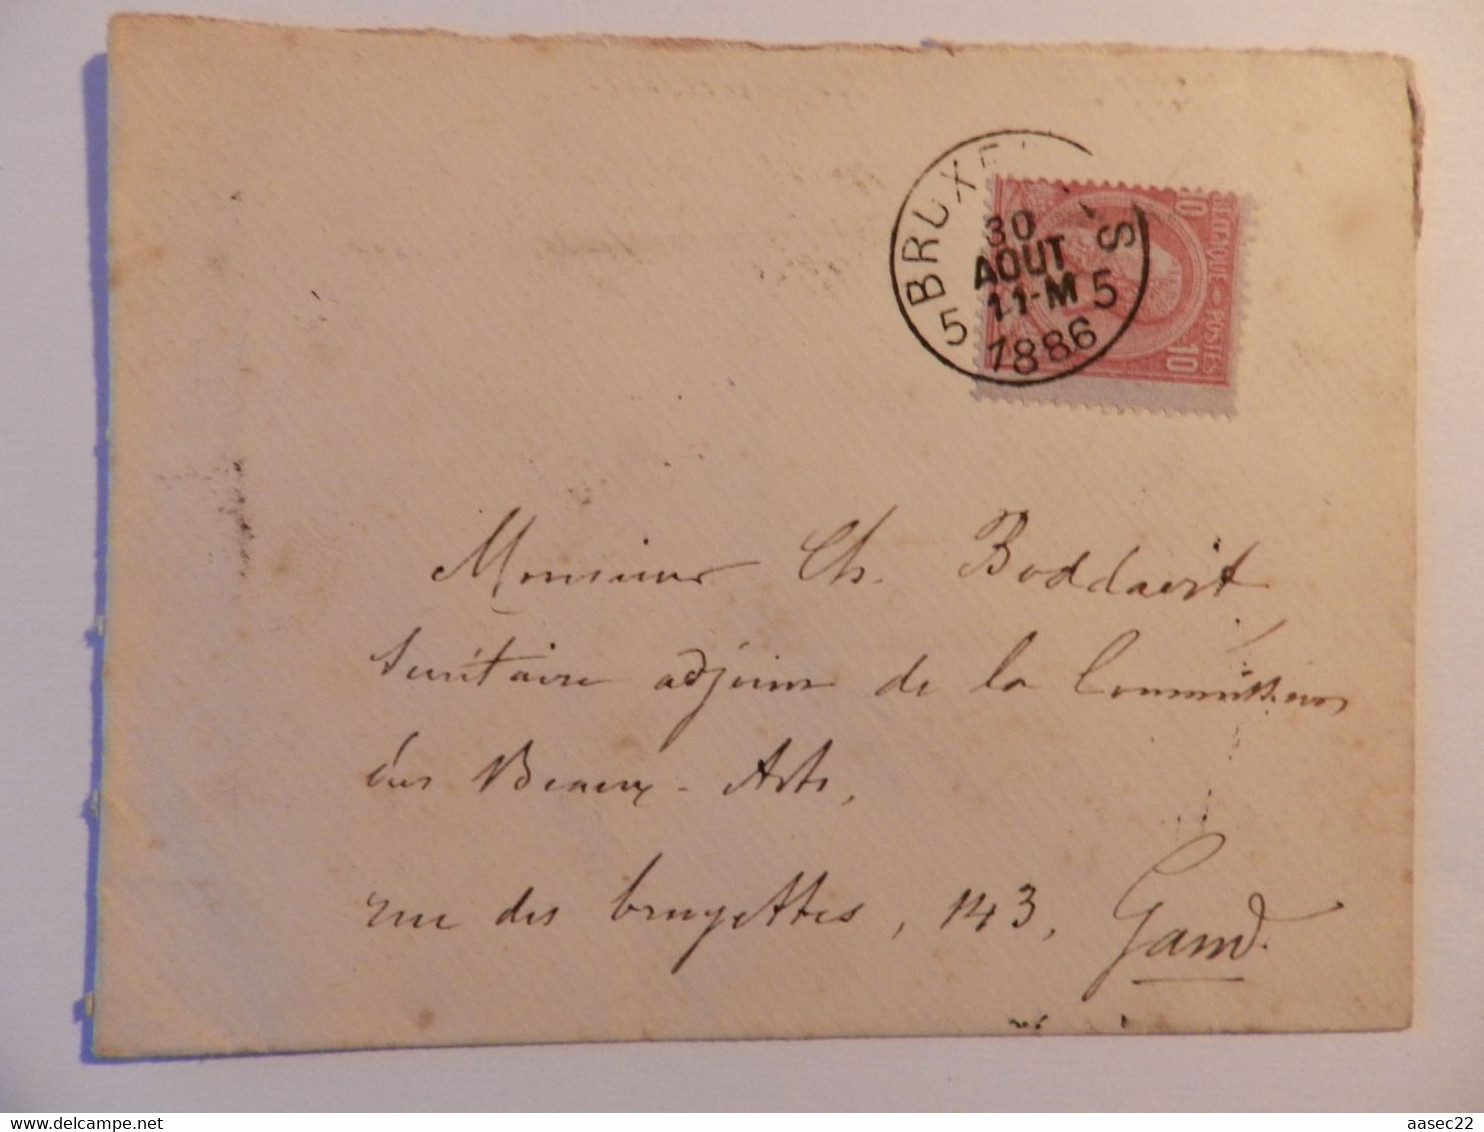 BRUXELLES
30
AOUT
11-M
5 5
1886
10
BELGIQUE POSTES
10
Monsieur Ch. Boddaert
Secrétaire adjoint de la Commission
des Beaux-Arts,
rue des bruyettes, 143, Gand.
aasec22